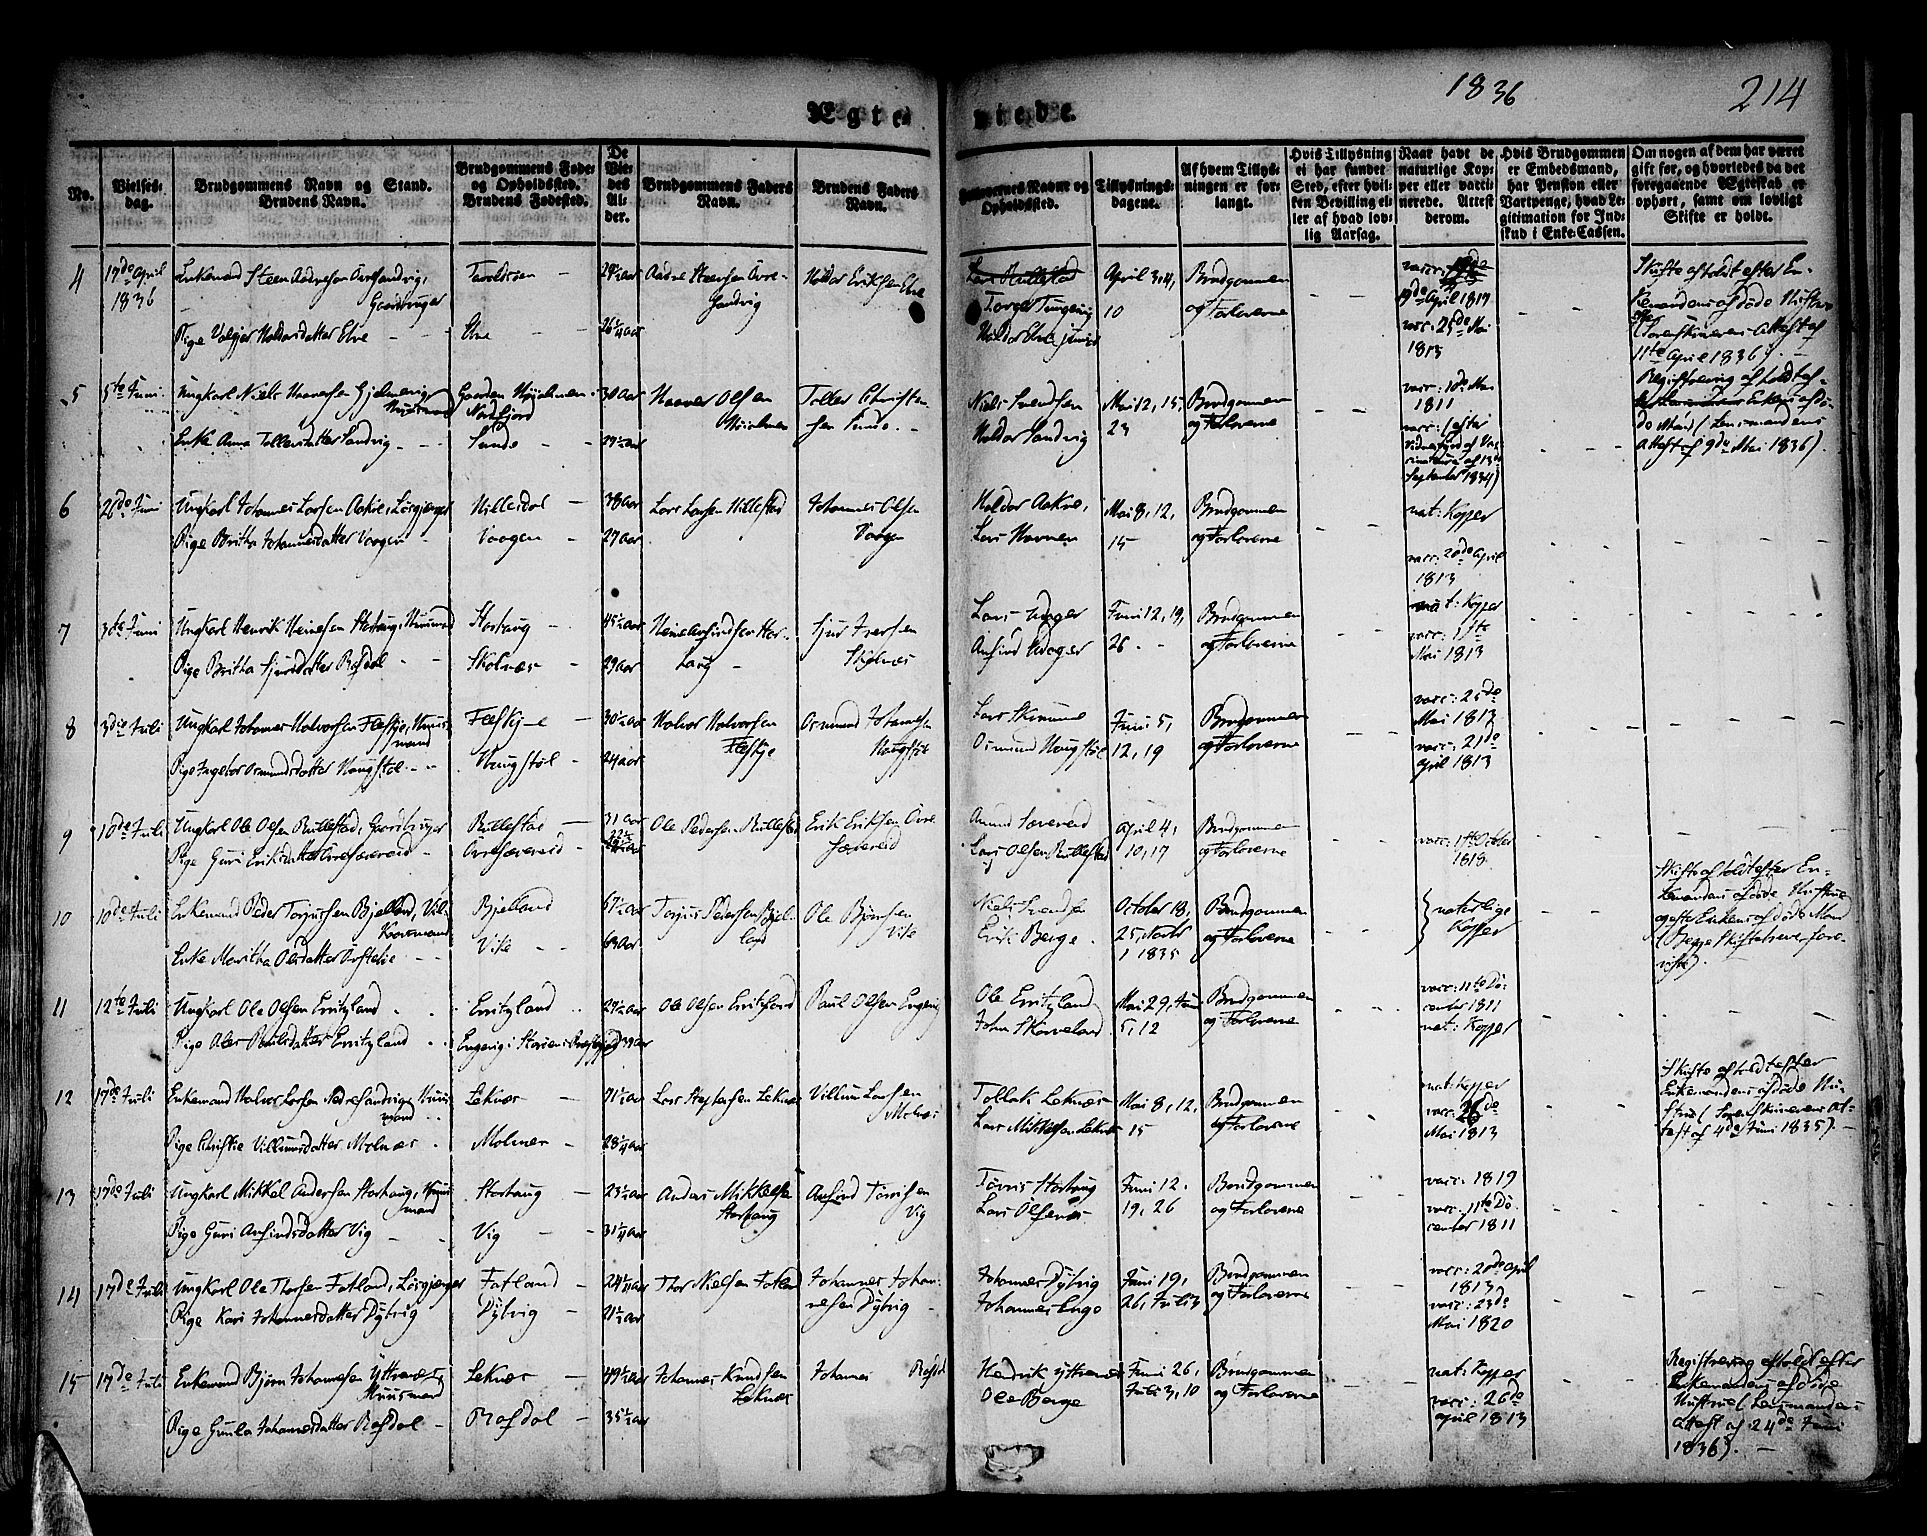 1836
214
Ægte-
viede.
No.
Vielses-
dag.
Brudgommens Navn og Stand.
Brudens Navn.
Brudgommens Føde-
og Opholdssted.
Brudens Fødested.
De
Vie-
des
Al-
der.
Brudgommens Faders
Navn.
Brudens Faders
Navn.
Forlovernes Navne og
Opholdssted.
Tillysnings-
dagene.
Af hvem Tillys-
ningen er for-
langt.
Hvis Tillysning
ei har fundet
Sted, efter hvil-
ken Bevilling el-
ler af hvad lov-
lig Aarsag.
Naar havt de
naturlige Kop-
per eller vacci-
nerede. Attest
derom.
Hvis Brudgommen
er Embedsmand,
har Pension eller
Vartpenge, hvad Le-
gitimation for Ind-
skud i Enke-Cassen.
Om nogen af dem har været
gift før, og hvorledes da va
foregaaende Ægteskab er
ophørt, samt om lovligt
Skifte er holdt.
4
17de April
1836
Enkemand Steen Aadnesen Øvresandvig,
Gaardbruger
Pige Valgjer Haldorsdatter Elve
Elve
26¼ aar
Aadne Steensen Øvre-
sandvig
Haldor Eriksen Elve
Lars Rullestad
Haldor Elve junior
April 3, 4,
10
Brudgommen
og Forloverne
17de April 1817
vacc: 25de Mai
1813
Skifte afholdt efter En-
kemandens afdøde Hustrue
(Sorenskriverens Attest af
11te April 1836).
5
5te Juni
Ungkarl Niels
Huusmand
Enke Anna Tollersdatter Sandvig
Sunde
30 aar
Toller Christen-
sen Sunde
Niels Svendsen
Haldor Sandvig
Mai 12, 15,
23
Brudgommen
og Forloverne
vacc: 10de Mai
1811
vacc: (efter
September 1834)
Registrering afholdt ef-
Attest af 9de Mai 1836).
6
26de Juni
Ungkarl Johannes Larsen Aakre, Løsgjænger
Pige Britha Johannesdatter Vaagen
Hillesdal
Vaagen
38 aar
27 aar
Lars Larsen Hillestad
Johannes Olsen
Vaagen
Haldor Aakre,
Lars Havnen
Mai 8, 12,
15
Brudgommen
og Forloverne
nat: Kopper
vacc: 20de April
1813
7
3de Juni
Ungkarl Henrik Heinesen Storhaug, Huusmand
Pige Britha Sjursdatter Rafdal
Storhaug
Skolnæs
45½ aar
29 aar
Sjur Iversen
Skolnæs
Lars Udager
Anfind Udager
Juni 12, 19,
26
Brudgommen
og Forloverne
nat: Kopper
vacc: 1ste
Mai 1813
8
3die Juli
Ungkarl Johannes Halvorsen Fleskje, Huus-
mand
Pige Ingebor Osmundsdatter Haugstøl
Fleskje
Haugstøl
30½ aar
24 aar
Halvor Halvorsen
Fleskje
Osmund Johannesen
Haugstøl
Osmund Haugstøl
Juni 5,
12, 19
Brudgommen
og Forloverne
vacc: 25de
Mai 1813
vacc: 21de
April 1813
9
10de Juli
Ungkarl Ole Olsen Rullestad, Gaardbruger
Pige Guri Eriksdatter Øvresævereid
Rullestad
Øvresævereid
31 aar
Ole Pedersen Rullestad
Erik Eriksen Øvre-
sævereid
Amund Sævereid
Lars Olsen Rullestad
April 4,
10, 17
Brudgommen
og Forloverne
vacc: 1ste October
1818
10
10de Juli
Enkemand Peder Torjussen Bjelland, Vil-
kaarsmand
Enke Maritha Olsdatter Ørstelie
Bjelland
Vike
67½ aar
69 aar
Torjus Pedersen Bjel-
land
Ole Bjørnsen
Vike
Niels Svendsen
Erik Berge
October 18,
25, Novbr
1 1835
Brudgommen
og Forloverne
naturlige
Kopper
Skifte afholdt efter En-
kemandens afdøde Hustrue
og efter Enkens afdøde Mand
(Begge Skiftebreve fore-
viiste).
11
12te Juli
Ungkarl Ole Olsen Emityland
Emityland
27½ aar
39 aar
Ole Olsen
Paul Olsen
Ole Emityland
John Skorveland
Mai 29, Juni
5, 12
Brudgommen
og Forloverne
vacc: 11te De-
cember 1811
nat: Kopper
12
17de Juli
Enkemand Halvor Larsen Nedresandvig, Huus-
mand
Pige Christie Villumsdatter Molnæs
Leknæs
Molnæs
71½ aar
28¼ aar
Lars Stephensen Leknæs
Villum Larsen
Molnæs
Tollak Leknæs
Lars Mikkelsen Leknæs
Mai 8, 12,
15
Brudgommen
og Forloverne
nat: Kopper
vacc: 26de
Mai 1813
Skifte afholdt efter
Enkemandens afdøde Hu-
strue (Sorenskriverens At-
test af 4de Juni 1835).
13
17de Juli
Ungkarl Mikkel Andersen Storhaug, Huus-
mand
Pige Guri Anfindsdatter Vig
Storhaug
Vig
23½ aar
31¼ aar
Anders Mikkelsen
Storhaug
Anfind Tørrissen
Vig
Tørris Storhaug
Lars Ølfernes
Juni 12,
19, 26
Brudgommen
og Forloverne
vacc: 1819
vacc: 11te De-
cember 1811
14
17de Juli
Ungkarl Ole Thorsen Fatland, Løsgjænger
Pige Kari Johannesdatter Dybvig
Fatland
Dybvig
24¼ aar
21½ aar
Thor Nielsen Fatland
Johannes Johan-
nesen Dybvig
Johannes Dybvig
Johannes Enge
Juni 19,
26, Juli 3
Brudgommen
og Forloverne
vacc: 20de April
1813
vacc: 23de
Mai 1820
15
17de Juli
Enkemand Bjørn Johannesen Yttrenæs,
Huusmand
Pige Gunla Johannesdatter Rafdal
Leknæs
Rafdal
49½ aar
35½ aar
Johannes Knudsen
Leknæs
Johannes Rafdal
Hendrik Yttrenæs
Ole Berge
Juni 26,
Juli 3, 10
Brudgommen
og Forloverne
nat: Kopper
vacc: 26de
April 1813
Registrering afholdt efter
Enkemandens afdøde
Hustrue (Lensmandens
Attest af 24de Juni
1836).